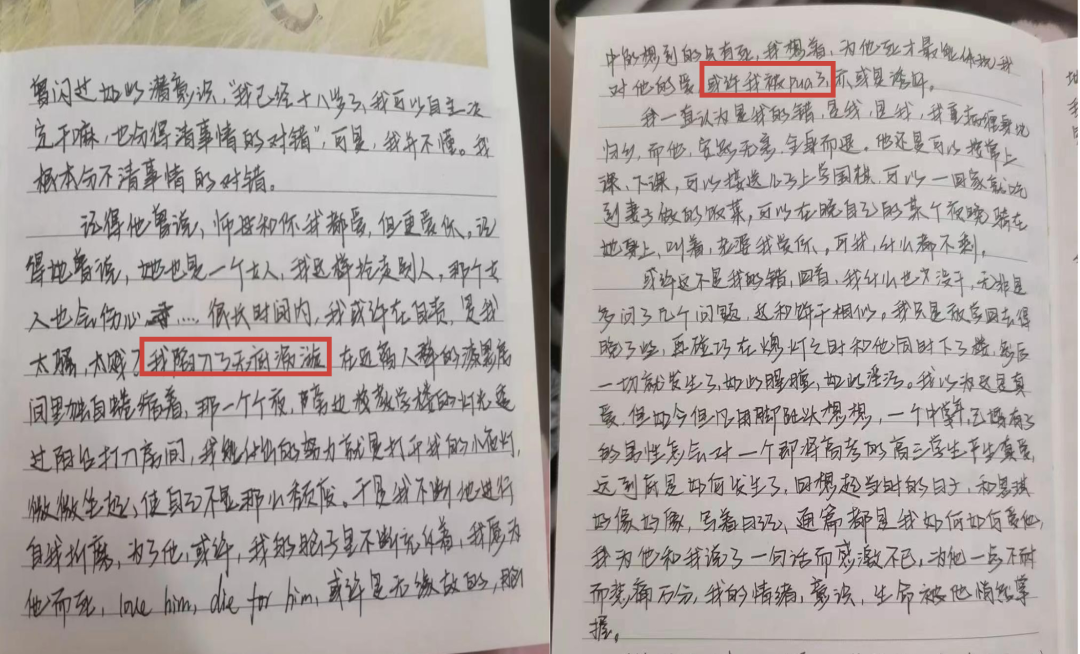 曾闪过如此潜意识，“我已经十八岁了，我可以自主决
定干嘛，也分得清事情的对错”，可是，我并不懂。我
根本分不清事情的对错。
记得他曾说，师母和你我都爱，但更爱你。记
得他曾说，她也是一个女人，我这样抢走别人，那个女
人也会伤心……很长时间内，我或许在自责，是我
太骚，太贱，我陷入了无底漩涡 在远离人群的漆黑房
间里独自蜷缩着，那一个个夜，隔边校教学楼的灯光透
过阳台打入房间，我能付出的努力就是打开我的小夜灯，
微微坐起，使自己不显那么颓废。于是我不断地进行
自我折磨，为了他，或许，我的脑子里不断充斥着，我愿为
他而死，love him, die for him, 或许是无缘故的，脑
中所想到的只有死，我想着，为他死才最能体现我
对他的爱 或许我被pua了，亦或是诱奸。
我一直认为是我的错，是我，是我，我真
归乡，而他，安然无恙，全身而退。他还是可以接常上
课、下课，可以接送儿子上学围棋，可以一回家就吃
到妻子做的饭菜，可以在晚自习的某个夜晚骑在
她身上，叫着，老婆我爱你。可我，什么都不剩。
或许这不是我的错，回首，我什么也没干，无非是
多问了几个问题，这和饼干相似。我只是放学回去得
晚了些，再碰巧在熄灯之时和他同时下了楼，然后
一切就发生了，如此腥膻，如此淫污。我以为这是真
爱，但如今但凡用脚趾头想想，一个中年，已婚有子
的男性怎会对一个即将高考的高三学生产生真爱，
这到底是如何发生了，回想起当时的日子，和思琪
好像好像，写着日记，通篇都是我如何如何爱他，
我为他和我说了一句话而感激不已，为他一点不耐
而悲痛万分，我的情绪，意识，生命被他悄然掌
握。